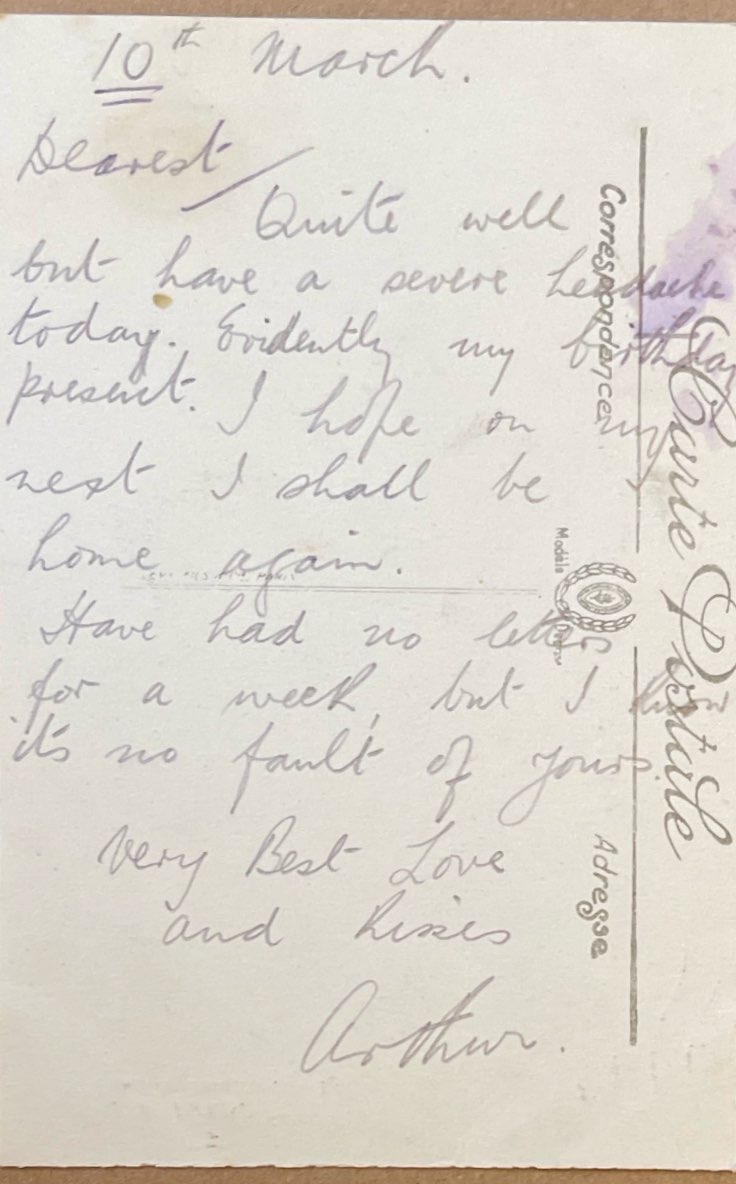 10th March.
Dearest
Quite well
but have a severe headache
today. Evidently my birthday
present. I hope on my
next I shall be
home again.
Have had no letters
for a week, but I know
it's no fault of yours.
Very Best Love
and kisses
Arthur.
Carte Postale
Correspondance
Modèle
Adresse